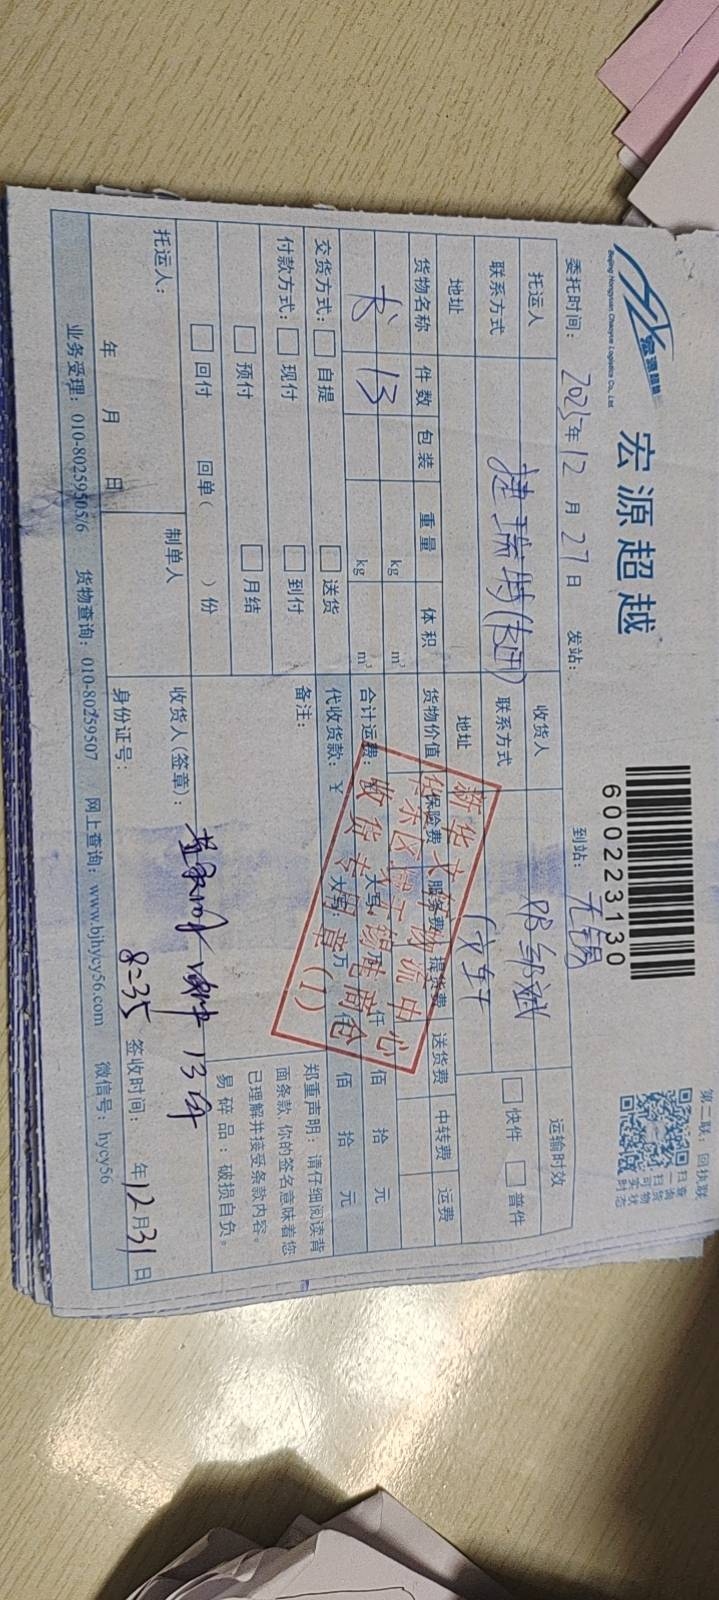 宏源超越
Beijing Hongyuan Chaoyue Logistics Co., Ltd
宏源超越
600223130
第二联：回执联
扫一扫可实时
查询货物状态
委托时间： 2025年12月27日 发站： 到站：无锡
托运人 捷瑞特 收货人 运输时效
联系方式 联系方式 快件 普件
地址 地址 文轩
货物名称 件数 包装 重量 体积 货物价值 保险费 服务费 提货费 送货费 中转费 运费
书 13 kg m³
kg m³ 合计运费： 大写： 万 仟 佰 拾 元
交货方式： 自提 送货 代收货款：¥ 大写： 万 仟 佰 拾 元
付款方式： 现付 到付 备注：
预付 月结
回付 回单（ ）份
郑重声明：请仔细阅读背
面条款，你的签名意味着您
已理解并接受条款内容。
易碎品：破损自负。
新华文轩物流中心
华东区域无锡电商仓
收货专用章(1)
托运人： 制单人 收货人(签章)： 13件
8:35
年 月 日 身份证号： 签收时间： 年12月31日
业务受理：010-80259505/6 货物查询：010-80259507 网上查询：www.bjhycy56.com 微信号：hycy56